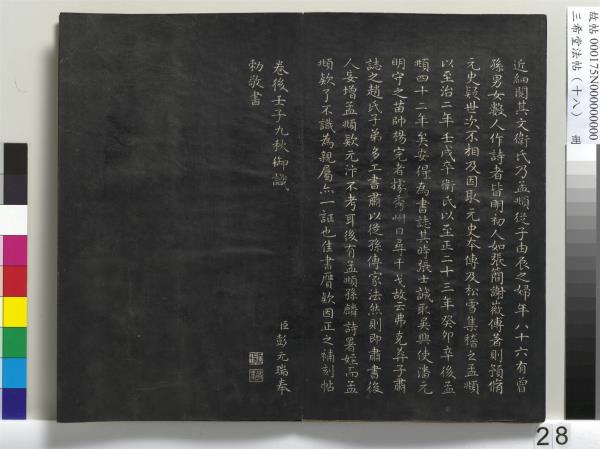 近細閱其文衛氏乃孟頫從子由辰之婦年八十六有曾
孫男女數人作詩者皆明初人如張簡謝徽傅著則預脩
元史疑世次不相及因取元史本傳及松雪集稽之孟頫
以至治二年壬戌卒衛氏以至正二十三年癸卯卒後孟
頫四十二年矣安得為書誌其時張士誠取吳興使潘元
明守之苗帥楊完者據秀州日尋干戈故云弗克葬子肅
誌之趙氏子弟多工書肅以從孫傳家法然則即肅書後
人妄增孟頫欵元汴不考耳後有孟頫孫麟詩署姪而孟
頫欵了不識為親屬亦一証也佳書贋欵因正之補刻帖
卷後壬子九秋御識
臣彭元瑞奉
勅敬書
故帖 000175N000000000
三希堂法帖（十八） 明
28